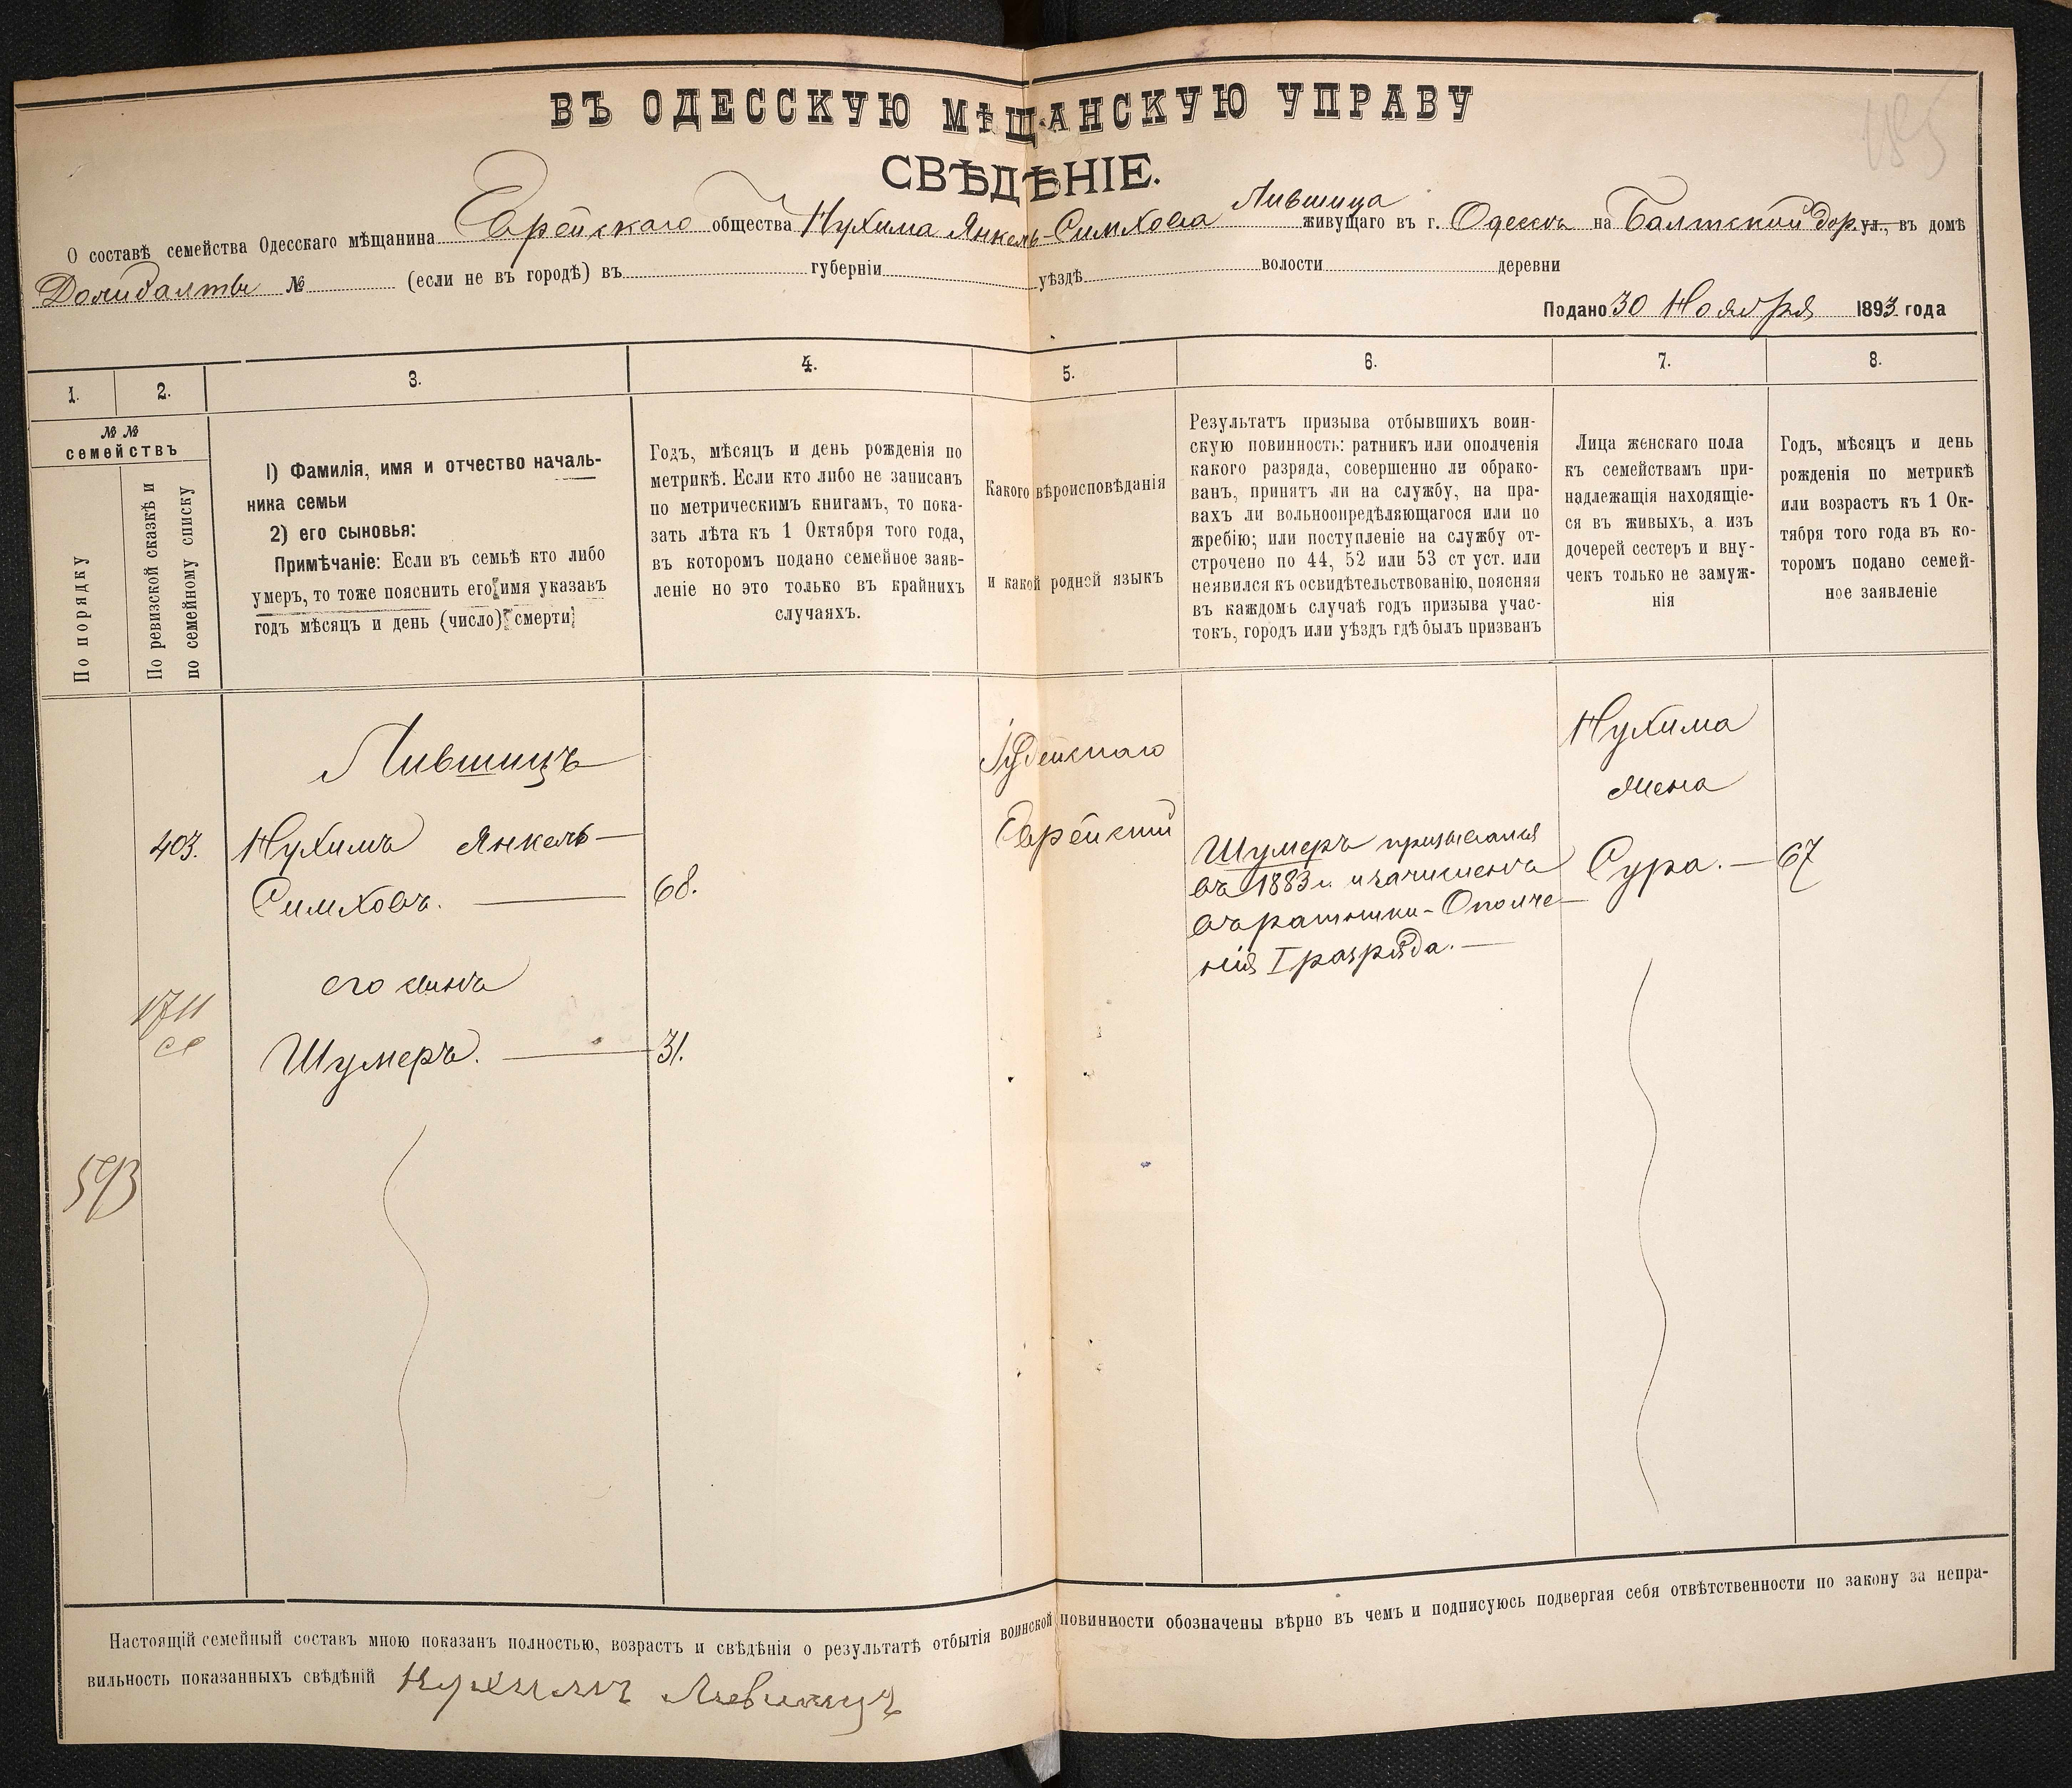 ВЪ ОДЕССКУЮ МѢЩАНСКУЮ УПРАВУ
СВѢДѢНІЕ.
О составѣ семейства Одесскаго мѣщанина Еврейскаго общества Нухима Янкель-Симхова Лившица живущаго въ г. Одессѣ на Балтской дор. ул., въ домѣ
№ (если не въ городѣ) въ губерніи уѣздѣ волости деревни
Подано 30 Ноября 1893 года
1. 2. 3. 4. 5. 6. 7. 8.
№ № семействъ
По порядку
По ревизской сказкѣ и
по семейному списку
1) Фамилія, имя и отчество началь-
ника семьи
2) его сыновья:
Примѣчаніе: Если въ семьѣ кто либо
умеръ, то тоже пояснить его имя указавъ
годъ мѣсяцъ и день (число) смерти
Годъ, мѣсяцъ и день рожденія по
метрикѣ. Если кто либо не записанъ
по метрическимъ книгамъ, то пока-
зать лѣта къ 1 Октября того года,
въ которомъ подано семейное заяв-
леніе но это только въ крайнихъ
случаяхъ.
Какого вѣроисповѣданія
и какой родной языкъ
Результатъ призыва отбывшихъ воин-
скую повинность: ратникъ или ополченія
какого разряда, совершенно ли обрако-
ванъ, принятъ ли на службу, на пра-
вахъ ли вольноопредѣляющагося или по
жребію; или поступленіе на службу от-
строчено по 44, 52 или 53 ст уст. или
неявился къ освидѣтельствованію, поясняя
въ каждомъ случаѣ годъ призыва учас-
токъ, городъ или уѣздъ гдѣ былъ призванъ
Лица женскаго пола
къ семействамъ при-
надлежащія находящіе-
ся въ живыхъ, а изъ
дочерей сестеръ и вну-
чекъ только не замуж-
нія
Годъ, мѣсяцъ и день
рожденія по метрикѣ
или возрастъ къ 1 Ок-
тября того года въ ко-
торомъ подано семей-
ное заявленіе
Лившицъ
403. Нухимъ Янкель-
Симховъ. 68.
его сынъ
1711
Шумеръ. 31.
593
Іудейскаго
Еврейскій
Шумеръ призывался
въ 1883 г. и зачисленъ
въ ратники-Ополче-
нія I разряда.
Нухима
жена
Сура. 67
Настоящій семейный составъ мною показанъ полностью, возрастъ и свѣдѣнія о результатѣ отбытія воинской повинности обозначены вѣрно въ чемъ и подписуюсь подвергая себя отвѣтственности по закону за непра-
вильность показанныхъ свѣдѣній Нухимъ Лившицъ